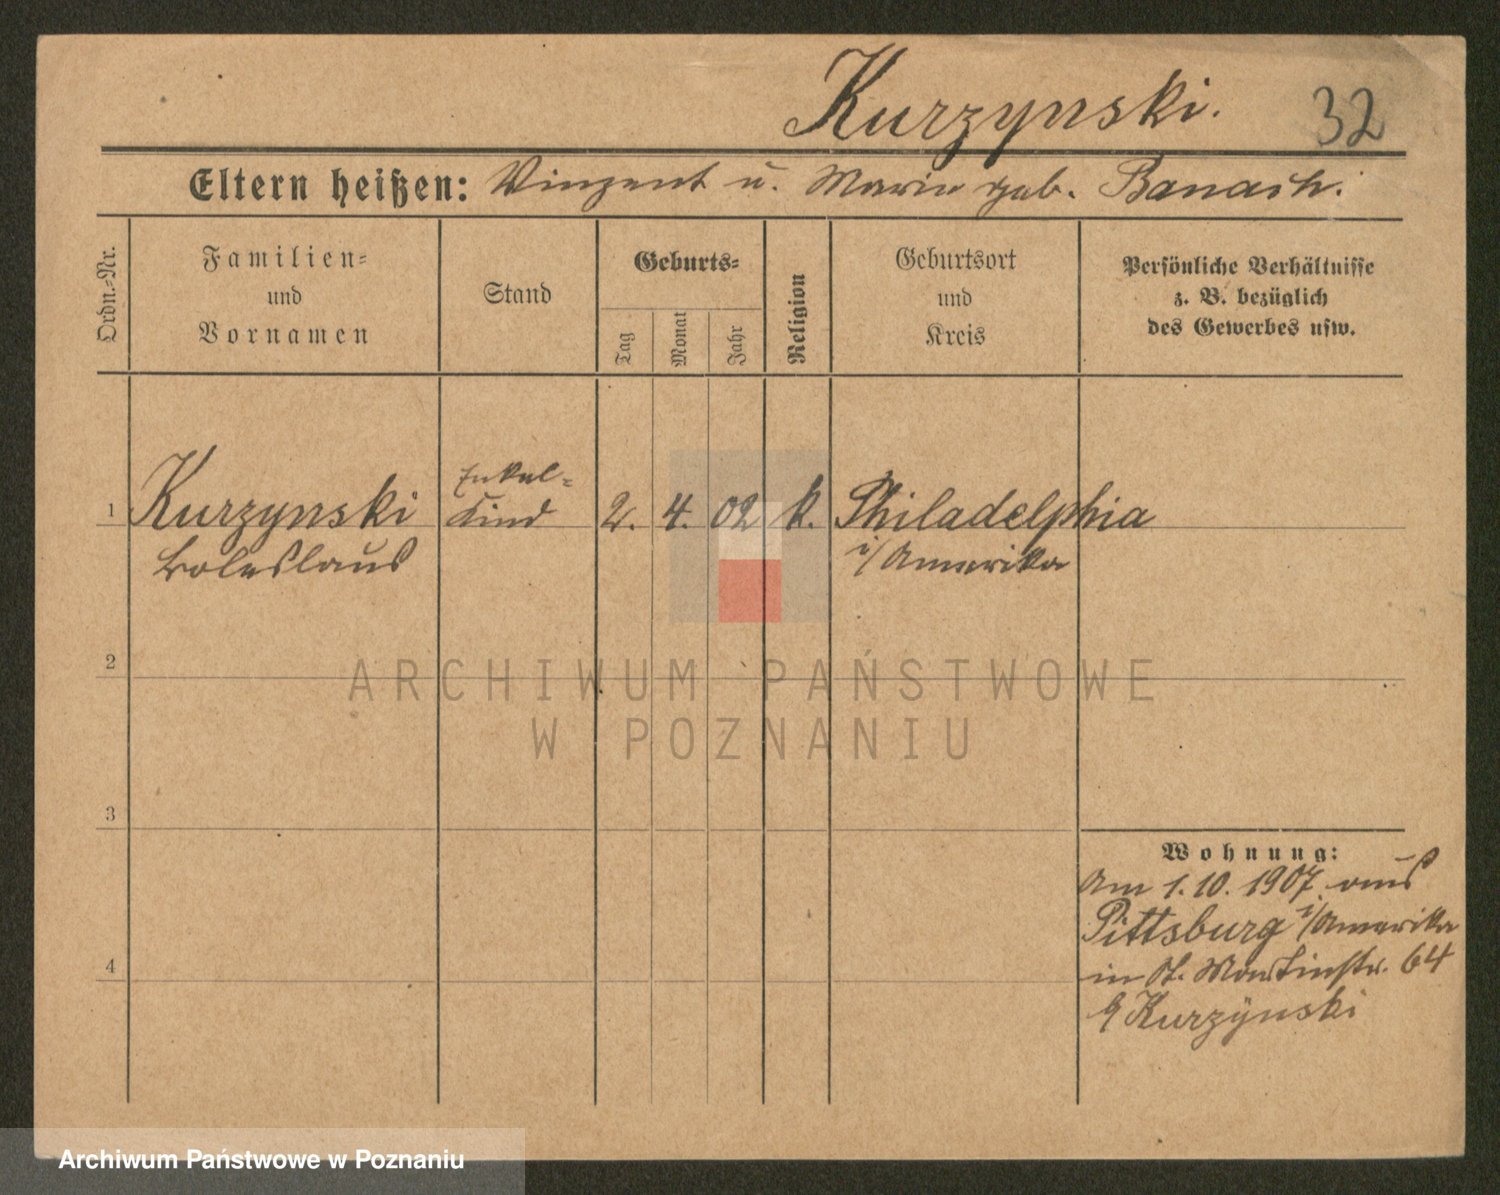 Kurzynski. 32
Eltern heißen: Vinzent u. Marie geb. Banach.
Ordn.-Nr.
Familien-
und
Vornamen
Stand
Geburts-
Tag
Monat
Jahr
Religion
Geburtsort
und
Kreis
Persönliche Verhältnisse
z. B. bezüglich
des Gewerbes usw.
Enkel-
1 Kurzynski Kind 2. 4. 02 k. Philadelphia
Boleslaus i/Amerika
2
ARCHIWUM PAŃSTWOWE
W POZNANIU
3
Wohnung:
Am 1.10.1907 aus
Pittsburg i/Amerika
4
in St. Martinstr. 64
Kurzynski
Archiwum Państwowe w Poznaniu